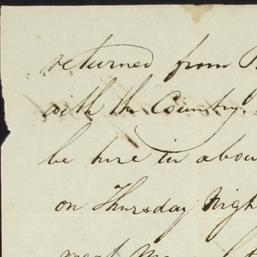 returned from
with the Country.
be here in abou
on Thursday Nigh